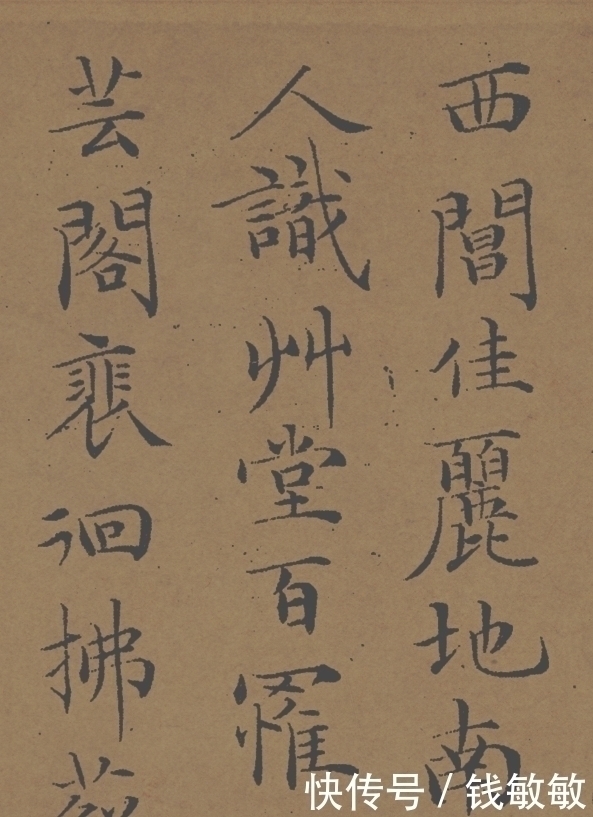 西閶佳麗地南
人識艸堂百罹
芸閣裵徊拂
快传号 / 钱敏敏